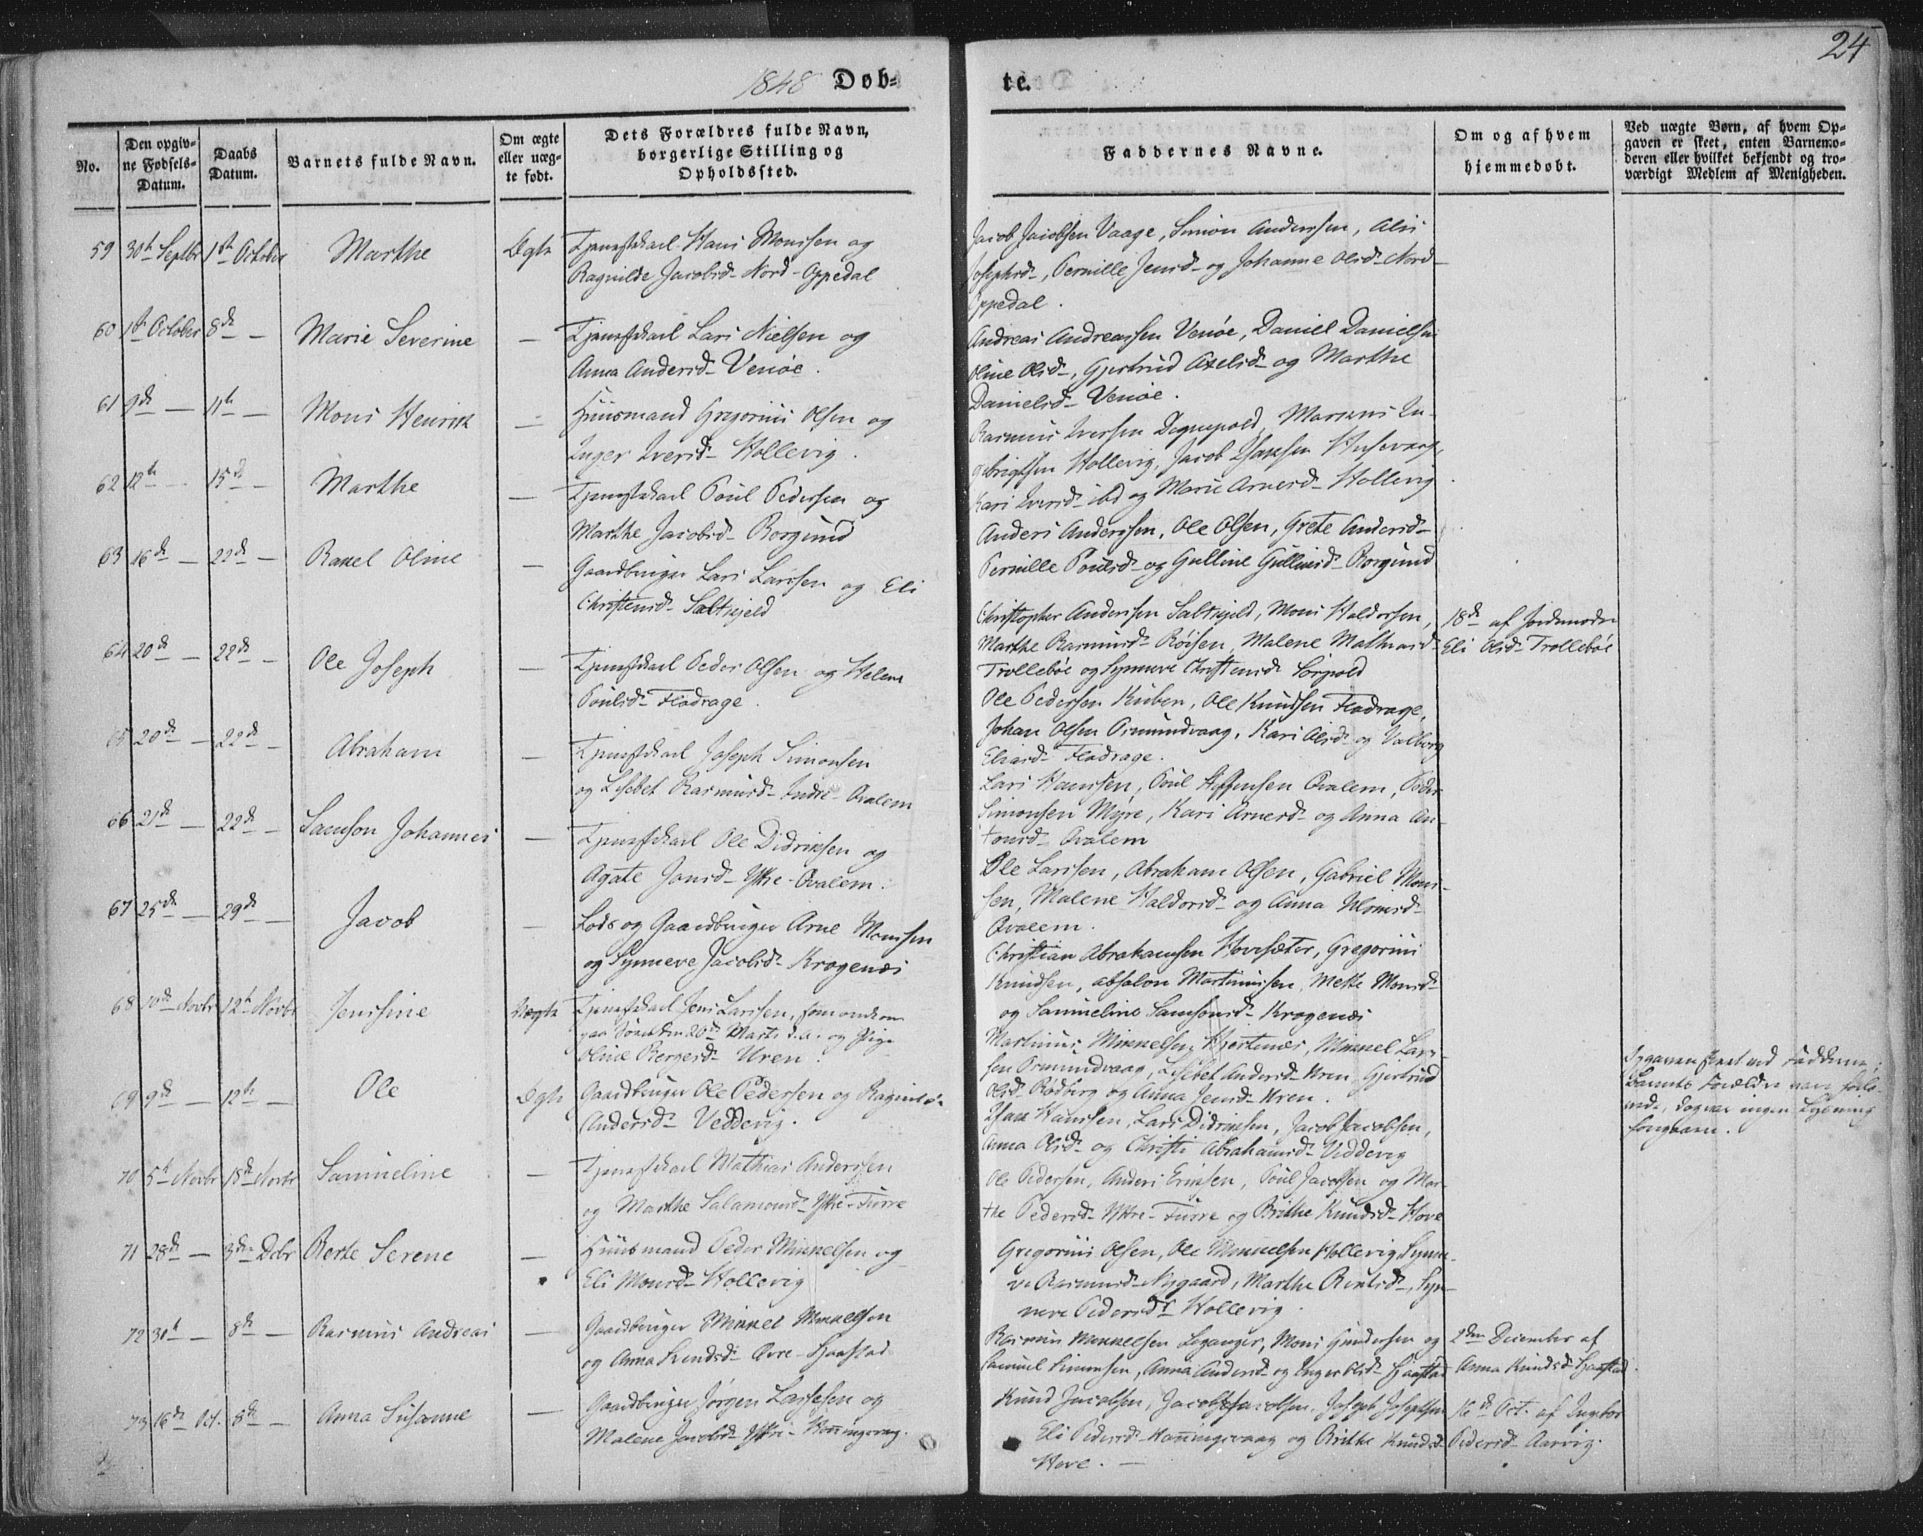 24
1848 Døb-
te.
No.
Den opgiv-
ne Fødsels-
Datum.
Daabs
Datum.
Barnets fulde Navn.
Om ægte
eller uæg-
te født.
Dets Forældres fulde Navn,
borgerlige Stilling og
Opholdssted.
Faddernes Navne.
Om og af hvem
hjemmedøbt.
Ved uægte Børn, af hvem Op-
gaven er skeet, enten Barnemo-
deren eller hvilket bekjendt og tro-
værdigt Medlem af Menigheden.
59 30te Septbr 1ste October Marthe Ægte Tjenestekarl Hans Monssen og
Ragnilde Jacobsd. Nord-Oppedal
Jacob Jacobsen Vaage, Simon Anderssen,
Josephsd., Pernille Jensd. og Johanne Olsd. Nord-
Oppedal.
60 1ste October 8de — Marie Severine — Tjenestekarl Lars Nielsen og
Anna Andersd. Veriøe.
Andreas Andreassen Veriøe, Daniel Danielsen
Oline Olsd., Gjertrud Axelsd. og Marthe
Danielsd. Veriøe.
61 9de — 11te — Mons Henrik — Huusmand Gregorius Olsen og
Inger Iversd. Hollevig.
Rasmus Iversen Degnepold, In-
gebrigtsen Hollevig, Jacob
Kari Iversd. ibd og Marie Arnesd. Hollevig.
62 12te — 15de — Marthe — Tjenestekarl Poul Pedersen og
Marthe Jacobsd. Borgund
Anders Anderssen, Ole Olsen, Grete Andersd.
Pernille Poulsd. og Gulline Gullinsd. Borgund
63 16de — 22de — Rakel Oline — Gaardbruger Lars Larssen og Eli
Christensd. Saltskjeld
Christopher Anderssen Saltskjeld, Mons Haldorsen,
Marthe Rasmusd. Røisen, Malene Mathiasd.
Trollebøe og Synneve Christensd. Sørpold
18de af Jordemoder
Eli Olsd. Trollebøe
64 20de — 22de — Ole Joseph — Tjenestekarl Peder Olsen og Helene
Poulsd. Flodrage.
Ole Pedersen Kuben, Ole Knudsen Flodrage,
Johan Olsen Ormundvaag, Kari Olsd. og Valborg
Eliasd. Flodrage.
65 20de — 22de — Abraham — Tjenestekarl Joseph Simonsen
og Lisebet Rasmusd. Indre-Qvalem
Lars Hanssen, Poul Steffensen Qvalem, Peder
Simonsen Myre, Kari Arnesd. og Anna An-
tonsd. Qvalem
66 21de — 22de — Samson Johannes — Tjenestekarl Ole Didriksen og
Agate Jonsd. Ytre-Qvalem.
Ole Larssen, Abraham Olsen, Gabriel Mons-
sen, Malene Haldorsd. og Anna
Qvalem.
67 25de — 29de — Jacob — Lods og Gaardbruger Arne Monssen
og Synneve Jacobsd. Krogenæs
Christian Abrahamsen Hovesæter, Gregorius
Knudsen, Absalon Martinussen, Mette Monsd.
og Sanneline Samsonsd. Krogenæs
68 10de Novbr 12te Novbr Jensine Uægte Tjenestekarl Jens Larssen, som omkom
paa Søen den 20de Marts d.a. og Pige
Oline Bergesd. Uren.
Martinus Mikkelsen Hjertenæs, Mikkel Lars-
sen Ormundvaag, Lisebet Andersd. Uren, Gjertrud
Olsd. Rødberg og Anna Jensd. Uren.
Opgaven skeet ved Fadderne;
Barnets Forældre vare forlo-
vede, dog var ingen Lysning
foregaaen.
69 9de — 12te — Ole Ægte Gaardbruger Ole Pedersen og Ragnilde
Andersd. Veddevig.
Isaac Hanssen, Lars Didriksen, Jacob Jacobsen,
Anna Olsd. og Christi Abrahamsd. Veddevig
70 5te Novbr 18de Novbr Sanneline — Tjenestekarl Mathias Anderssen
og Marthe Salamonsd. Ytre-Furre
Ole Pedersen, Anders Eriksen, Poul Jacobsen og Mar-
the Pedersd. Ytre-Furre og Brithe Knudsd. Hove
71 28de — 3die Dcbr Berte Serene — Huusmand Peder Mikkelsen og
Eli Monsd. Hollevig
Gregorius Olsen, Ole Mikkelsen Hollevig, Synne-
ve Rasmusd. Nygaard, Marthe Bentsd., Syn-
neve Pedersd. Hollevig.
72 30te — 8de — Rasmus Andreas — Gaardbruger Mikkel Mikkelsen
og Anna Knudsd. Øvre-Haastad
Rasmus Mikkelsen Leganger, Mons Gundersen og
Samuel Simonsen, Anna Andersd. og Inger Olsd. Haastad
2den December af
Anna Knudsd. Haastad.
73 16de Oct. 8de — Anna Susanne — Gaardbruger Jørgen Lassesen og
Malene Jacobsd. Ytre-Honningsvaag.
Knud Jacobsen, Jacob Jacobsen, Joseph Josephsen
Eli Pedersd. Honningsvaag og Brithe Knudsd.
Hove. —
16de Oct. af Ingebor
Pedersd. Aarvig.